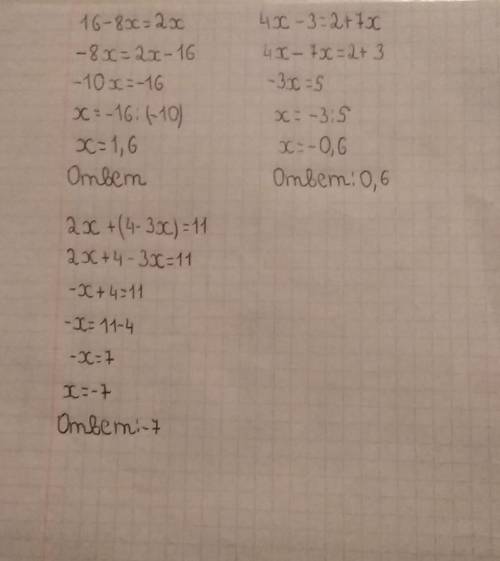 16-8x=2x
-8x=2x-16
-10x=-16
x=-16:(-10)
x=1,6
Ответ
4x-3=2+7x
4x-7x=2+3
-3x=5
x=-3:5
x=-0,6
Ответ:0,6
2x+(4-3x)=11
2x+4-3x=11
-x+4=11
-x=11-4
-x=7
x=-7
Ответ:-7